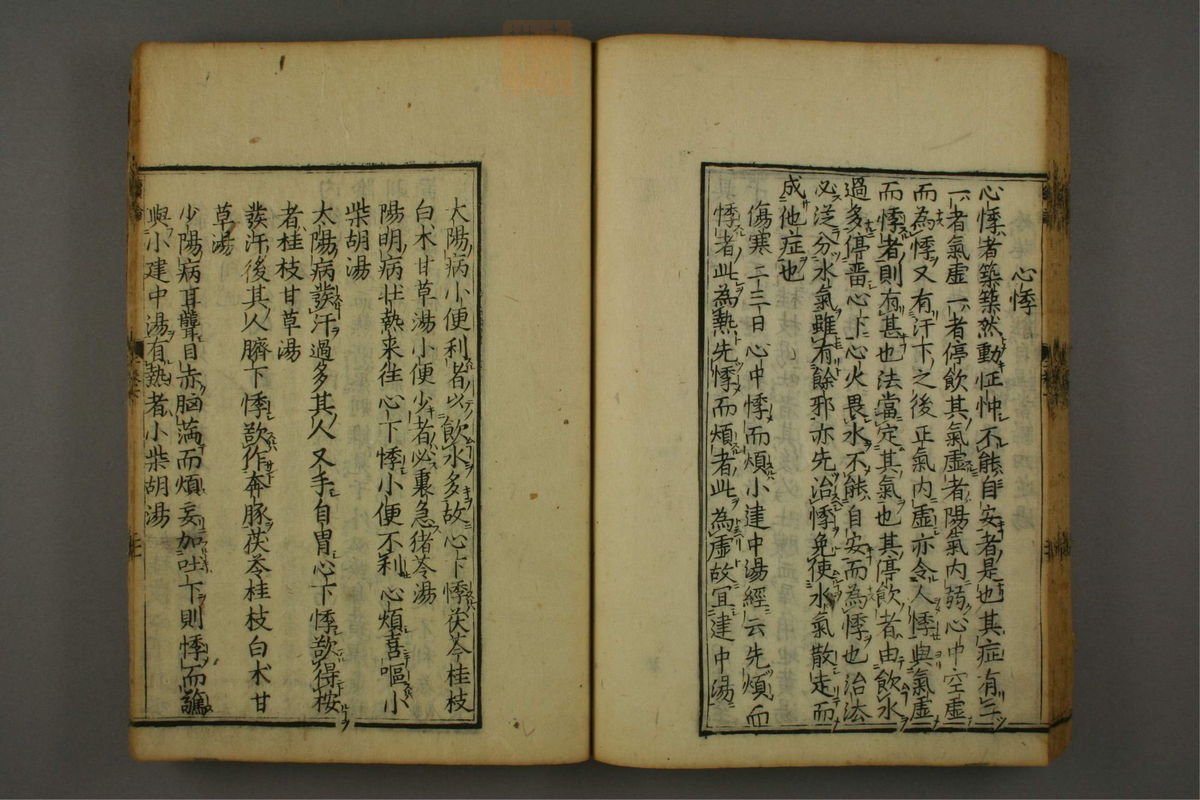 心悸
心悸者築築然動怔忡不能自安者是也其症有二
一者氣虛一者停飲其氣虛者陽氣内弱心中空虛
而為悸又有汗下之後正氣内虛亦令人悸與氣虛
而悸者則有甚也法當定其氣也其停飲者由飲水
過多停畜心下心火畏水不能自安而為悸也治法
必泛分水氣雖有餘邪亦先治悸免使水氣散走而
成他症也
傷寒二三日心中悸而煩小建中湯經云先煩而
悸者此為熱先悸而煩者此為虛故宜建中湯
太陽病小便利者以飲水多故心下悸茯苓桂枝
白朮甘草湯小便少者必裏急猪苓湯
陽明病壮熱来往心下悸小便不利心煩喜嘔小
柴胡湯
太陽病發汗過多其人叉手自冒心下悸欲得按
者桂枝甘草湯
發汗後其人臍下悸欲作奔豚茯苓桂枝白朮甘
草湯
少陽病耳聾目赤胸満而煩妄加吐下則悸而驚
與小建中湯有熱者小柴胡湯